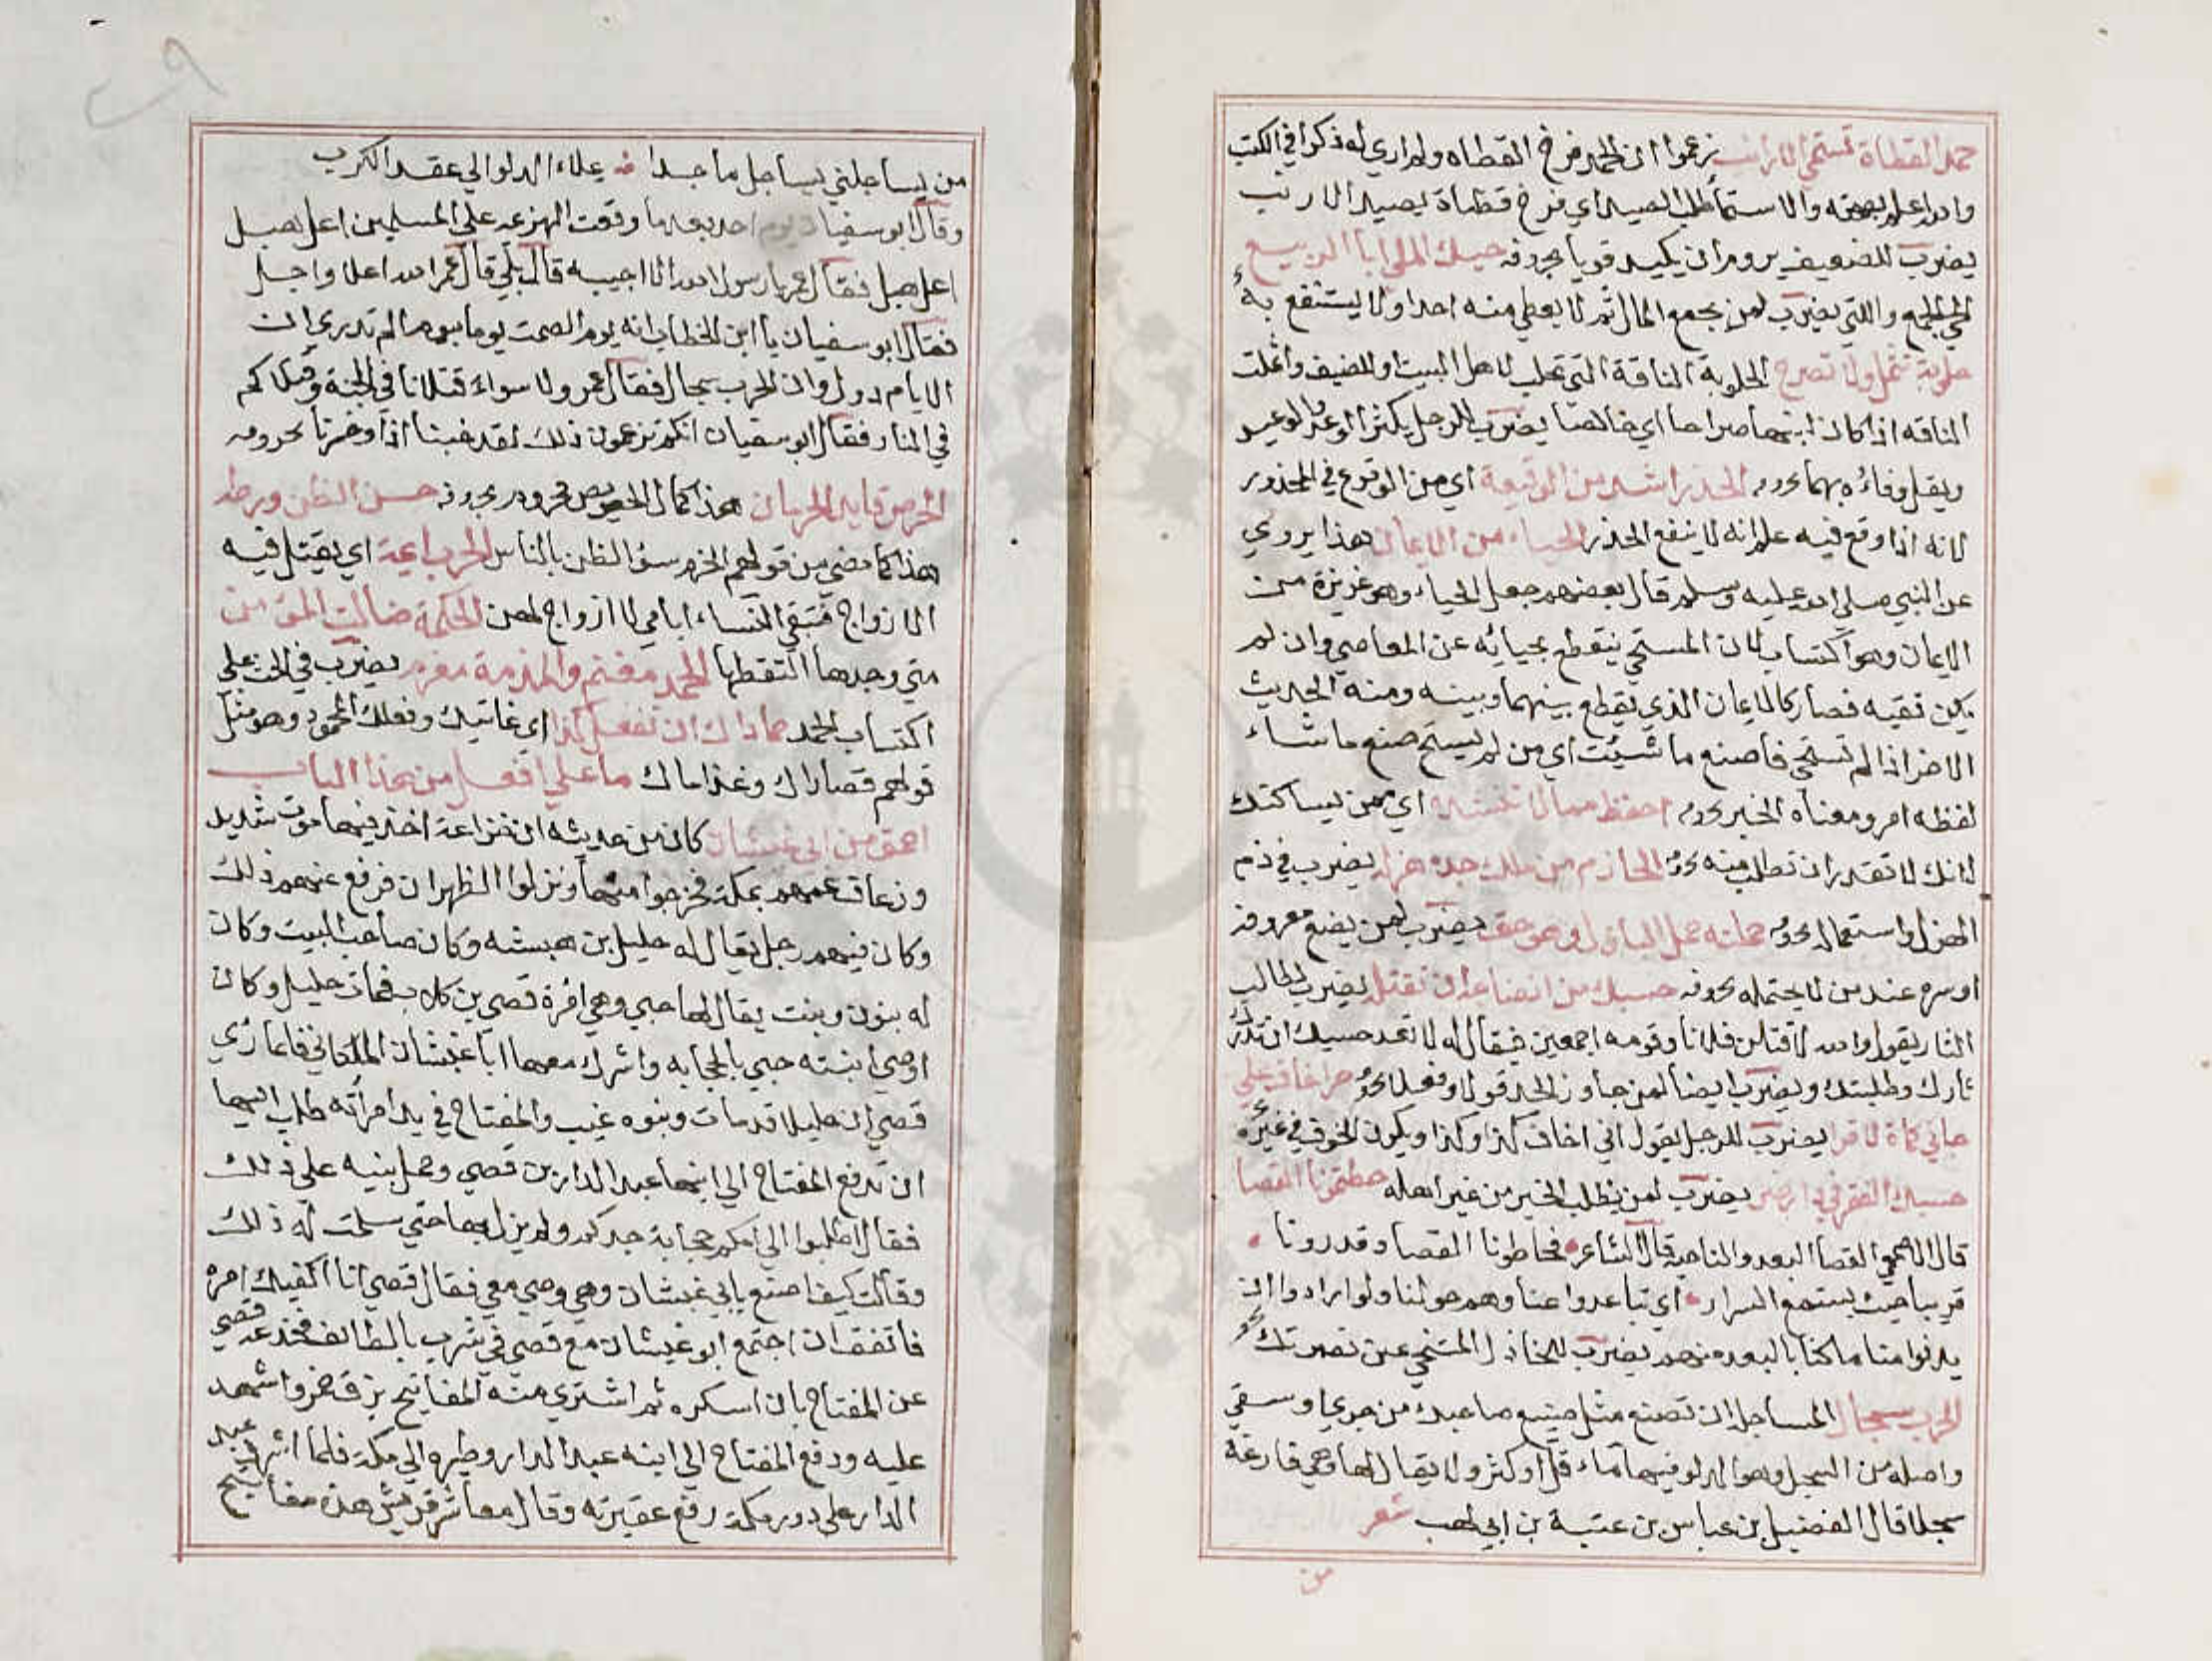 حمد القطاة تستمي الارانب زعموا ان الحمد فرخ القطاه ولم اري له ذكرا في الكتب
والله اعلم بصحته والاستماء طلب الصيد اي فرخ قطاة يصيد الارانب
يضرب للضعيف يروم ان يكيد قويا بحروفه حيلك الملي ابا الربيع
الجمع والتي يضرب لمن يجمع المال ثم لا يعطي منه احدا ولا ينتفع به
حلوبة تثمل ولا تصرح الحلوبة الناقة التي تحلب لاهل البيت او للضيف واثملت
الناقه اذا كان لبنها صراحا اي خالصا يضرب للرجل يكثر الوعد والوعيد
ويقل وفاؤه بهما بحروفه الحذر اشد من الوقيعة اي من الوقوع في المحذور
لانه اذا وقع فيه علم انه لا ينفع الحذر الحياء من الايمان هذا يروي
عن النبي صلي الله عليه وسلم قال بعضهم جعل الحياء وهو غريزة من
الايمان وهو اكتساب لان المستحي ينقطع بحيائه عن المعاصي وان لم
يكن تقيه فصار كالايمان الذي يقطع بينهما وبينه ومنه الحديث
الاخر اذا لم تستحي فاصنع ما شئت اي من لم يستح صنع ما شاء
لفظه امر ومعناه الخبر بحروفه احفظ مما لا تنشده اي ممن يساكنك
لانك لا تقدر ان تطلب منه بحروفه الحازم من ملك جده هزله يضرب في ذم
الهزل واستعماله بحروفه حملته حمل البازل وهو حق يضرب لمن يضع معروفه
او سره عند من لا يحتمله بحروفه حسبك من انضاجه ان تقتله يضرب لطالب
الثار يقول والله لاقتلن فلانا وقومه اجمعين فيقال له لا تعد حسبك ان تدرك
ثارك وطلبتك ويضرب ايضا لمن جاوز الحد قولا وفعلا
يضرب للرجل يقول اني اخاف كذا وكذا ويكون الخوف في غيره
حسبك الفقر في دار ضر يضرب لمن يطلب الخير من غير اهله حطتمونا القصا
قال الاصمعي القصا البعد والناحية قال الشاعر فحاطونا القصا وقد رونا
قريبا حيث يستمع السرار اي تباعدوا عنا وهم حولنا ولو ارادوا ان
يدنوا منا ما كنا بالبعد منهم يضرب للخاذل المتنحي عن نصرتك
الحرب سجال المساجل ان تصنع مثل صنيع صاحبك من جري او سقي
واصله من السجل وهو الدلو فيها ماء قل او كثر ولا يقال لها وهي فارغة
سجلا قال الفضيل بن عباس بن عتبة بن ابي لهب شعر
من
من يساجلني يساجل ماجدا يملاء الدلو الي عقد الكرب
وقال ابو سفيان يوم احد بعد ما وقعت الهزيمه علي المسلمين اعل هبل
اعل هبل فقال عمر يا رسول الله الا اجيبه قال بلي قال عمر الله اعلا واجل
فقال ابو سفيان يا ابن الخطاب انه يوم الصمت يوما بيوم الم تدري ان
الايام دول وان الحرب سجال فقال عمر ولا سواء قتلانا في الجنة وقتلاكم
في النار فقال ابو سفيان انكم تزعمون ذلك لقد خبنا اذا وخسرنا بحروفه
الحرص قايد الحرمان هذا كما قال الحريص محروم بحروفه حسن الظن ورطه
هذا كما مضي من قولهم الحزم سؤ الظن بالناس الحرب ايمة اي يقتل فيه
الازواج فتبقي النساء ايامي لا ازواج لهن الحكمة ضالت المؤمن
متي وجدها التقطها الحمد مغنم والمذمة مغرم يضرب في الحث علي
اكتساب الحمد حماداك ان تفعل كذا اي غايتك وفعلك المحمود وهو مثل
قولهم قصاراك وغناماك ما علي افعل من هذا الباب
احمق من ابي غبشان كان من حديثه ان خزاعة اخذ فيها موت شديد
ورعاف عمهم بمكة فخرجوا منها ونزلوا الظهران فرفع عنهم ذلك
وكان فيهم رجل يقال له حليل بن حبشه وكان صاحب البيت وكان
له بنون وبنت يقال لها حبي وهي امرة قصي بن كلاب فمات حليل وكان
اوصي ابنته حبي بالحجابه واشرك معها ابا غبشان الملكاني فلما راي
قصي ان حليلا قد مات وبنوه غيب والمفتاح في يد امرأته طلب اليها
ان تدفع المفتاح الي ابنها عبد الدار بن قصي وحمل بنيه علي ذلك
فقال اطلبوا الي امكم حجابة جدكم ولم يزل بها حتي سلمت له ذلك
وقالت كيف اصنع بابي غبشان وهي وصي معي فقال قصي انا اكفيك امره
فاتفق ان اجتمع ابو غبشان مع قصي في شرب بالطائف فخدعه قصي
عن المفتاح بان اسكره ثم اشتري منه المفاتيح بزق خمر واشهد
عليه ودفع المفتاح الي ابنه عبد الدار وطيره الي مكة فلما اشرف عبد
الدار علي دور مكة رفع عقيرته وقال معاشر قريش هذه مفاتيح